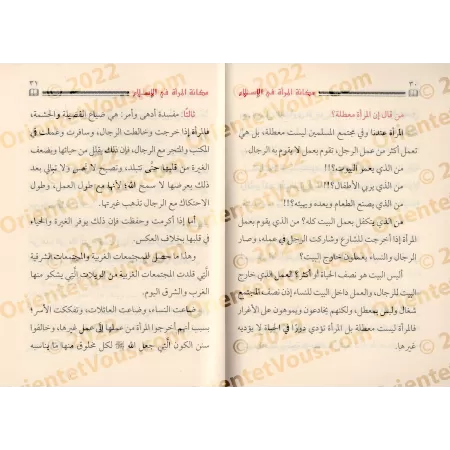 ٣٠
مكانة المرأة في الإسلام
من قال إن المرأة معطلة؟
المرأة عندنا وفي مجتمع المسلمين ليست معطلة، بل هي
تعمل أكثر من عمل الرجل، تقوم بعمل لا يقوم به الرجال.
من الذي يعمر البيوت؟!!
من الذي يربي الأطفال؟!!
من الذي يصنع الطعام ويعده ويهيئه؟!!
من الذي يتكفل بعمل البيت كله؟ من الذي يقوم بعمل
المرأة إذا أخرجت للشارع وشاركت الرجل في عمله، وصار
الرجال والنساء يعملون خارج البيت؟
أليس البيت هو نصف الحياة أو أكثر؟ العمل الذي خارج
البيت للرجال، والعمل داخل البيت للنساء إذن نصف المجتمع
شغال وليس بمعطل، ولكنهم يخادعون ويموهون على الأغرار
فالمرأة ليست معطلة بل المرأة تؤدي دورًا في الحياة لا يؤديه
غيرها.
٣١
مكانة المرأة في الإسلام
ثالثًا: مفسدة أدهى وأمر: هي ضياع الفضيلة والحشمة،
فالمرأة إذا خرجت وخالطت الرجال، وسافرت وعملت في
المكتب والمتجر مع الرجال، فإن ذلك يقلل من حيائها ويضعف
الغيرة من قلبها حتَّى تتبلد، وتصبح لا تحس ولا تبالي بعد
ذلك بعرضها لا سمح الله؛ لأنها مع طول العمل، وطول
الاحتكاك مع الرجال تذهب غيرتها.
أما إذا أكرمت وحفظت فإن ذلك يوفر الغيرة والحياء
في قلبها بخلاف العكس.
وهذا ما حصل للمجتمعات الغربية والمجتمعات الشرقية
التي قلدت المجتمعات الغربية من الويلات التي يشكو منها
الغرب والشرق اليوم.
ضاعت النساء، وضاعت العائلات، وتفككت الأسر؛
بسبب أنهم أخرجوا المرأة من عملها إلى عمل غيرها، وخالفوا
سنن الكون الَّتي جعل الله ﷻ لكل مخلوق منها ما يناسبه
© 2022
OrientetVous.com